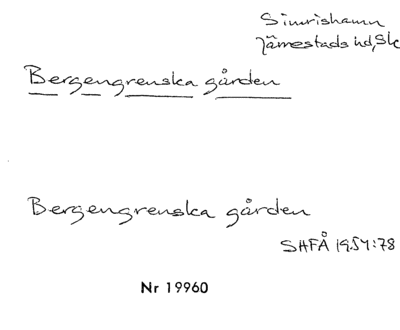 Simrishamn
Järrestads hd, Sk
Bergengrenska gården
Bergengrenska gården
SHFÅ 1954:78
Nr 19960